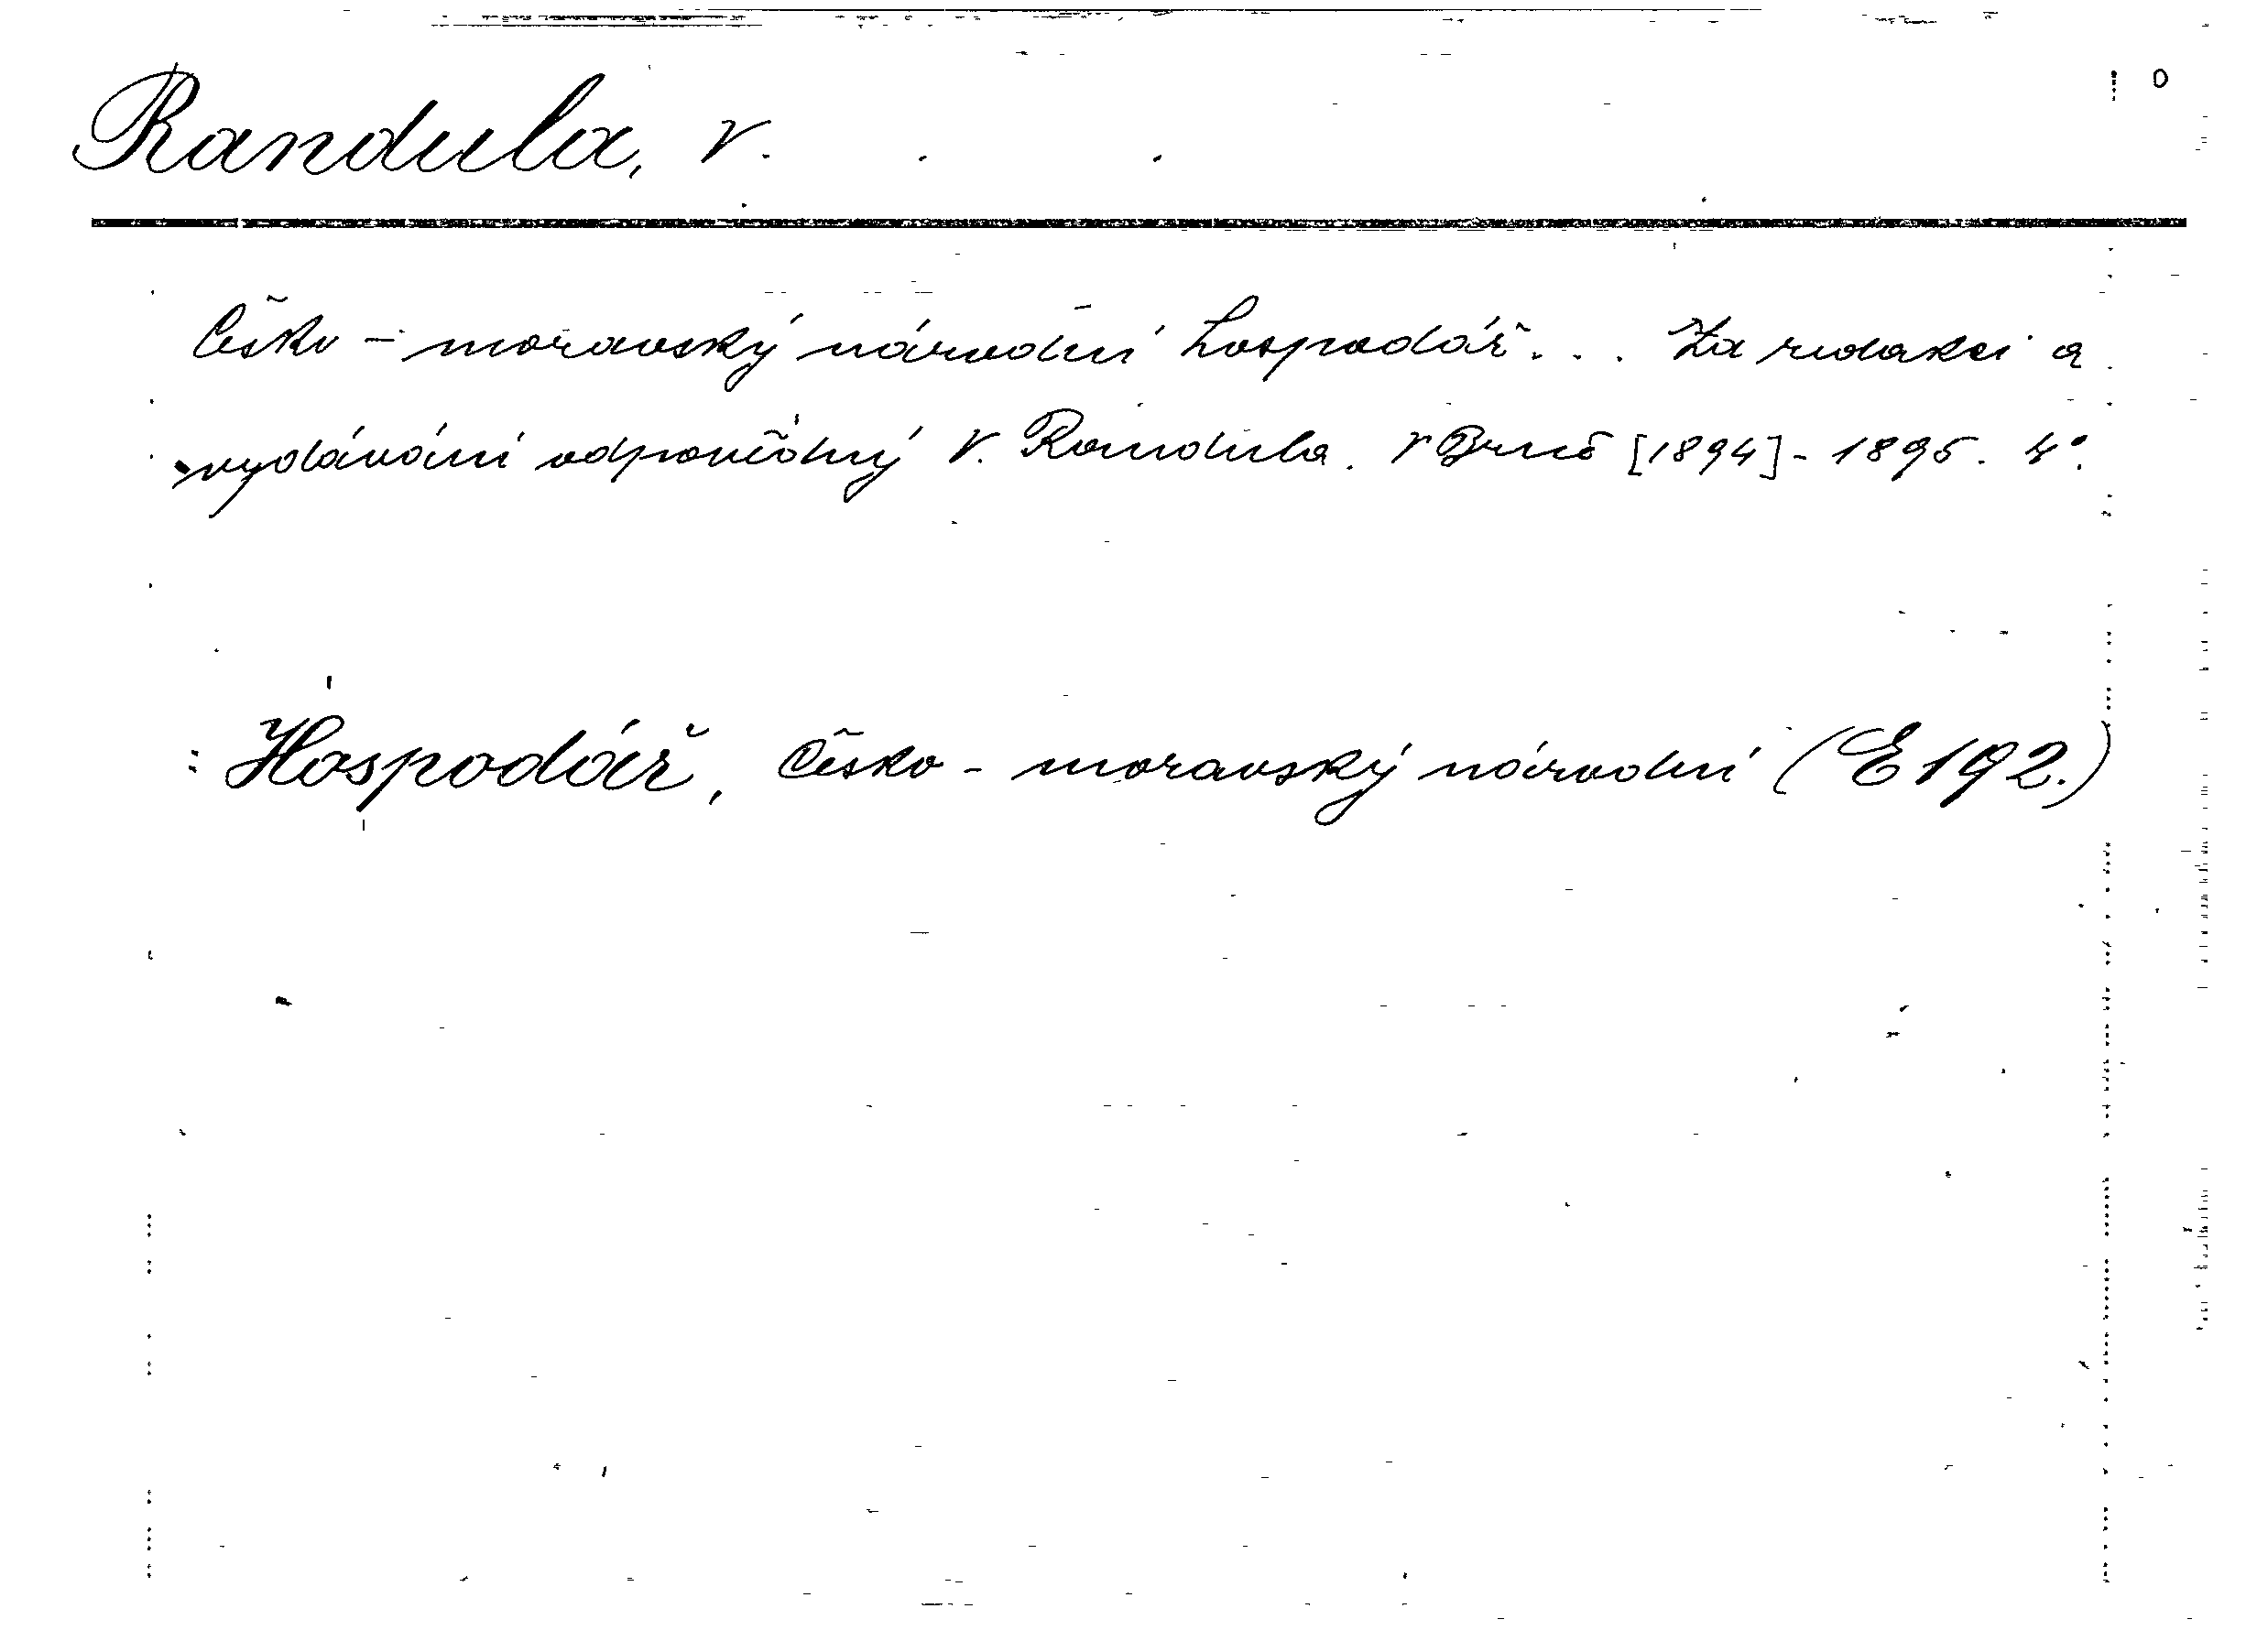 Randula, V.
Česko - moravský národní hospodář... Za redakci a
vydávání odpovědný V. Randula. V Brně [1894] - 1895. 4°.
: Hospodář, Česko - moravský národní (E 192.)